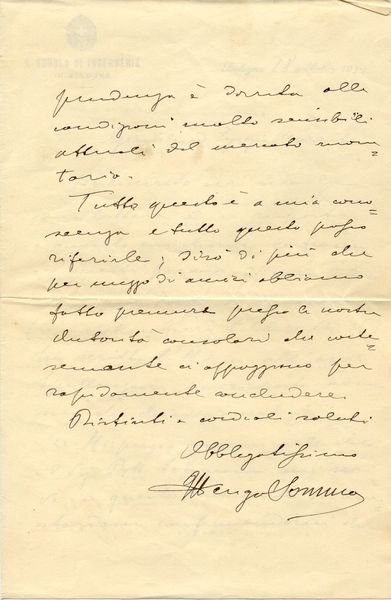 R. SCUOLA DI INGEGNERIA
BOLOGNA
Bologna
prudenza è dovuta alle
condizioni molto sensibili
attuali del mercato mone=
tario.
Tutto questo è a mia cono=
scenza e tutto questo posso
riferirle; dirò di più che
per mezzo di amici abbiamo
fatto premura presso le nostre
Autorità consolari che corte=
semente ci appoggiano per
rapidamente concludere.
Distinti e cordiali saluti
Obbligatissimo